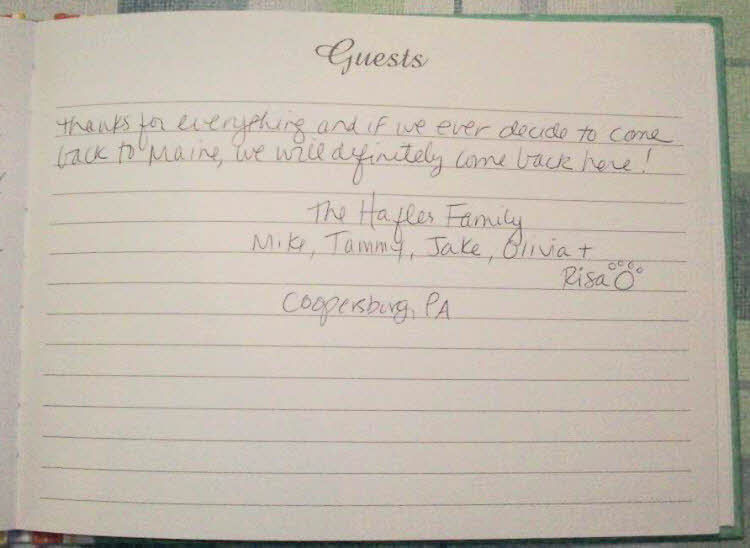 Guests
thanks for everything and if we ever decide to come
back to Maine, we will definitely come back here!
The Hafler Family
Mike, Tammy, Jake, Olivia +
Risa
Coopersburg, PA